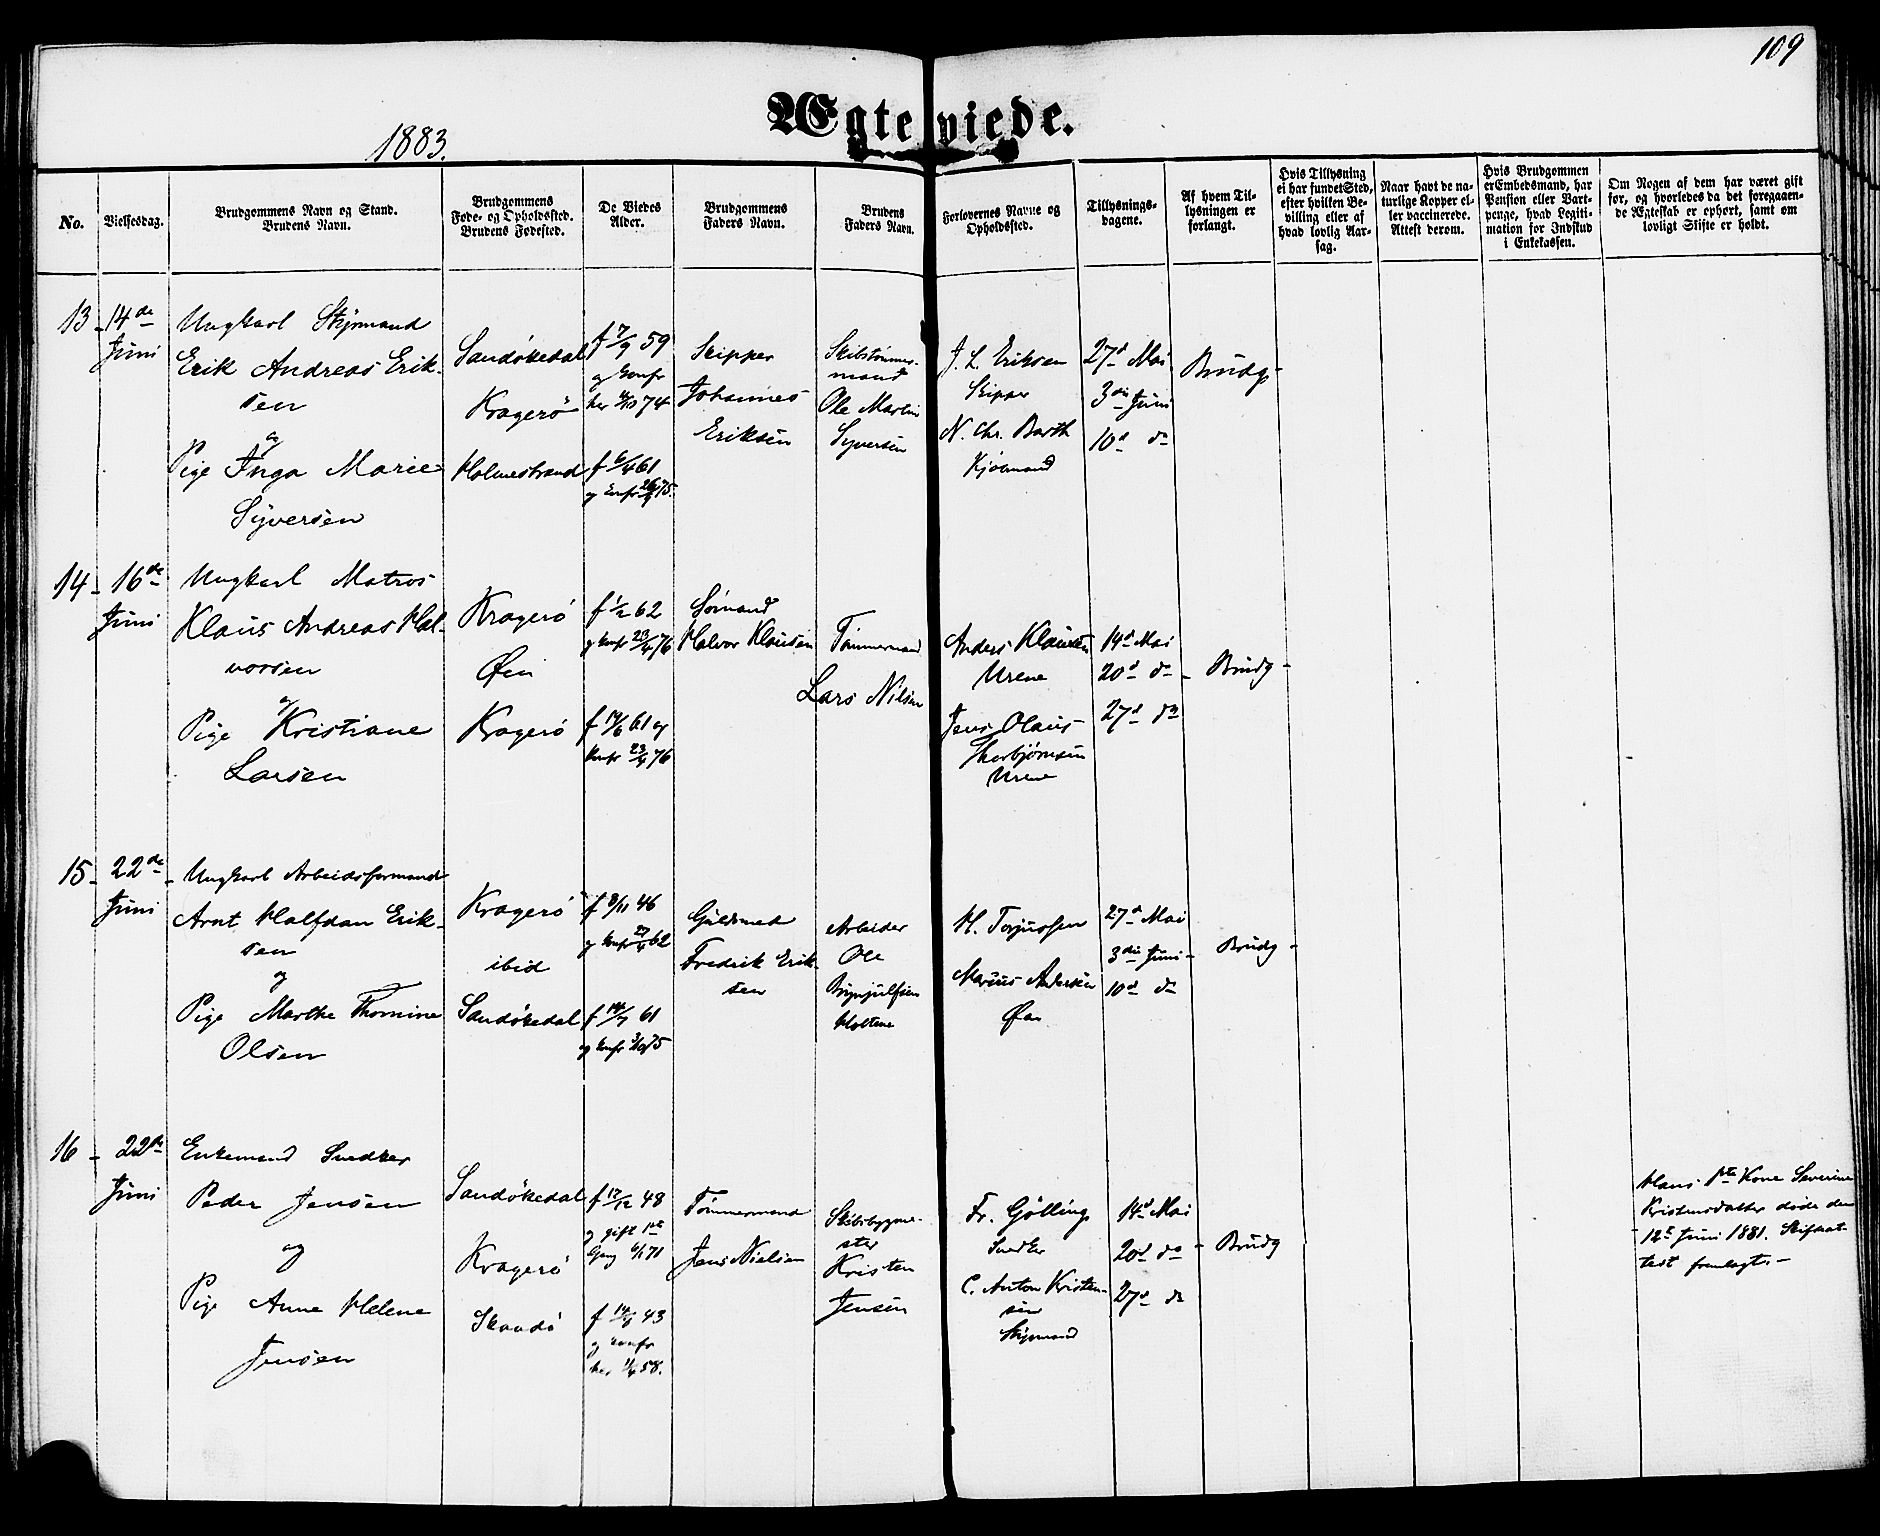 109
Ægteviede.
1883.
No.
Vielsesdag.
Brudgommens Navn og Stand.
Brudens Navn.
Brudgommens
Føde- og Opholdssted.
Brudens Fødested.
De Viedes
Alder.
Brudgommens
Faders Navn.
Brudens
Faders Navn.
Forlovernes Navne og
Opholdssted.
Tillysnings-
dagene.
Af hvem Til-
lysningen er
forlangt.
Hvis Tillysning
ei har fundet Sted,
efter hvilken Be-
villing eller af
hvad lovlig Aar-
sag.
Naar havt de na-
turlige Kopper el-
ler vaccinerede.
Attest derom.
Hvis Brudgommen
er Embedsmand, har
Pension eller Vart-
penge, hvad Legiti-
mation for Indskud
i Enkekassen.
Om Nogen af dem har været gift
før, og hvorledes da det foregaaen-
de Ægteskab er ophørt, samt om
lovligt Skifte er holdt.
13 - 14de
Juni
Ungkarl Styrmand
Erik Andreas Erik-
sen
og
Pige Inga Marie
Syversen
Sandøkedal
Kragerø
Holmestrand
f 7/9 59
og konfr
her 4/10 74
f 6/4 61
og konfr 26/9 75.
Skipper
Johannes
Eriksen
Skibstømmer-
mand
Ole Martin
Syversen
J. L. Eriksen
Skipper
N. Chr. Barth
Kjøbmand
27d Mai
3die Juni
10d do
Brudg-
14 - 16de
Juni
Ungkarl Matros
Klaus Andreas Hal-
vorsen
og
Pige Kristiane
Larsen
Kragerø
Øen
Kragerø
f 1/2 62
og konfr 23/4 76
f 19/6 61 og
konfr 23/4 76
Sømand
Halvor Klausen
Tømmermand
Lars Nilsen
Anders Klausen
Urene
Jens Olaus
Thorbjørnsen
Urene
14d Mai
20d do -
27d do
Brudg -
15 - 22de -
Juni
Ungkarl Arbeidsformand
Arnt Halfdan Erik-
sen
og
Pige Marthe Thomine
Olsen
Kragerø
ibid
Sandøkedal
f 8/11 46
og konfr 27/4 62
f 14/7 61
og konfr 3/10 75
Guldsmed
Fredrik Erik-
sen
Arbeider
Ole
Brynjulfsen
Holtene
H. Torjussen
Marius Andersen
Øen
27d Mai
3die Juni -
10d do
Brudg -
16 - 22de
Juni
Enkemand Snedker
Peder Jensen
og
Pige Anne Helene
Jensen
Sandøkedal
Kragerø
Skaadø
f 17/12 48
og gift 1ste
Gang 6/1 71
f 14/8 43
og konfr
her 11/4 58.
Tømmermand
Jens Nielsen
Skibsbygme-
ster
Kristen
Jensen
Fr. Gølling
Snedker
C. Anton Kristen-
sen
Styrmand
14d Mai
20d do -
27d do
Brudg
Hans 1ste Kone Severine
Kristensdatter døde den
12te Juni 1881. Skifteat-
test fremlagt. -